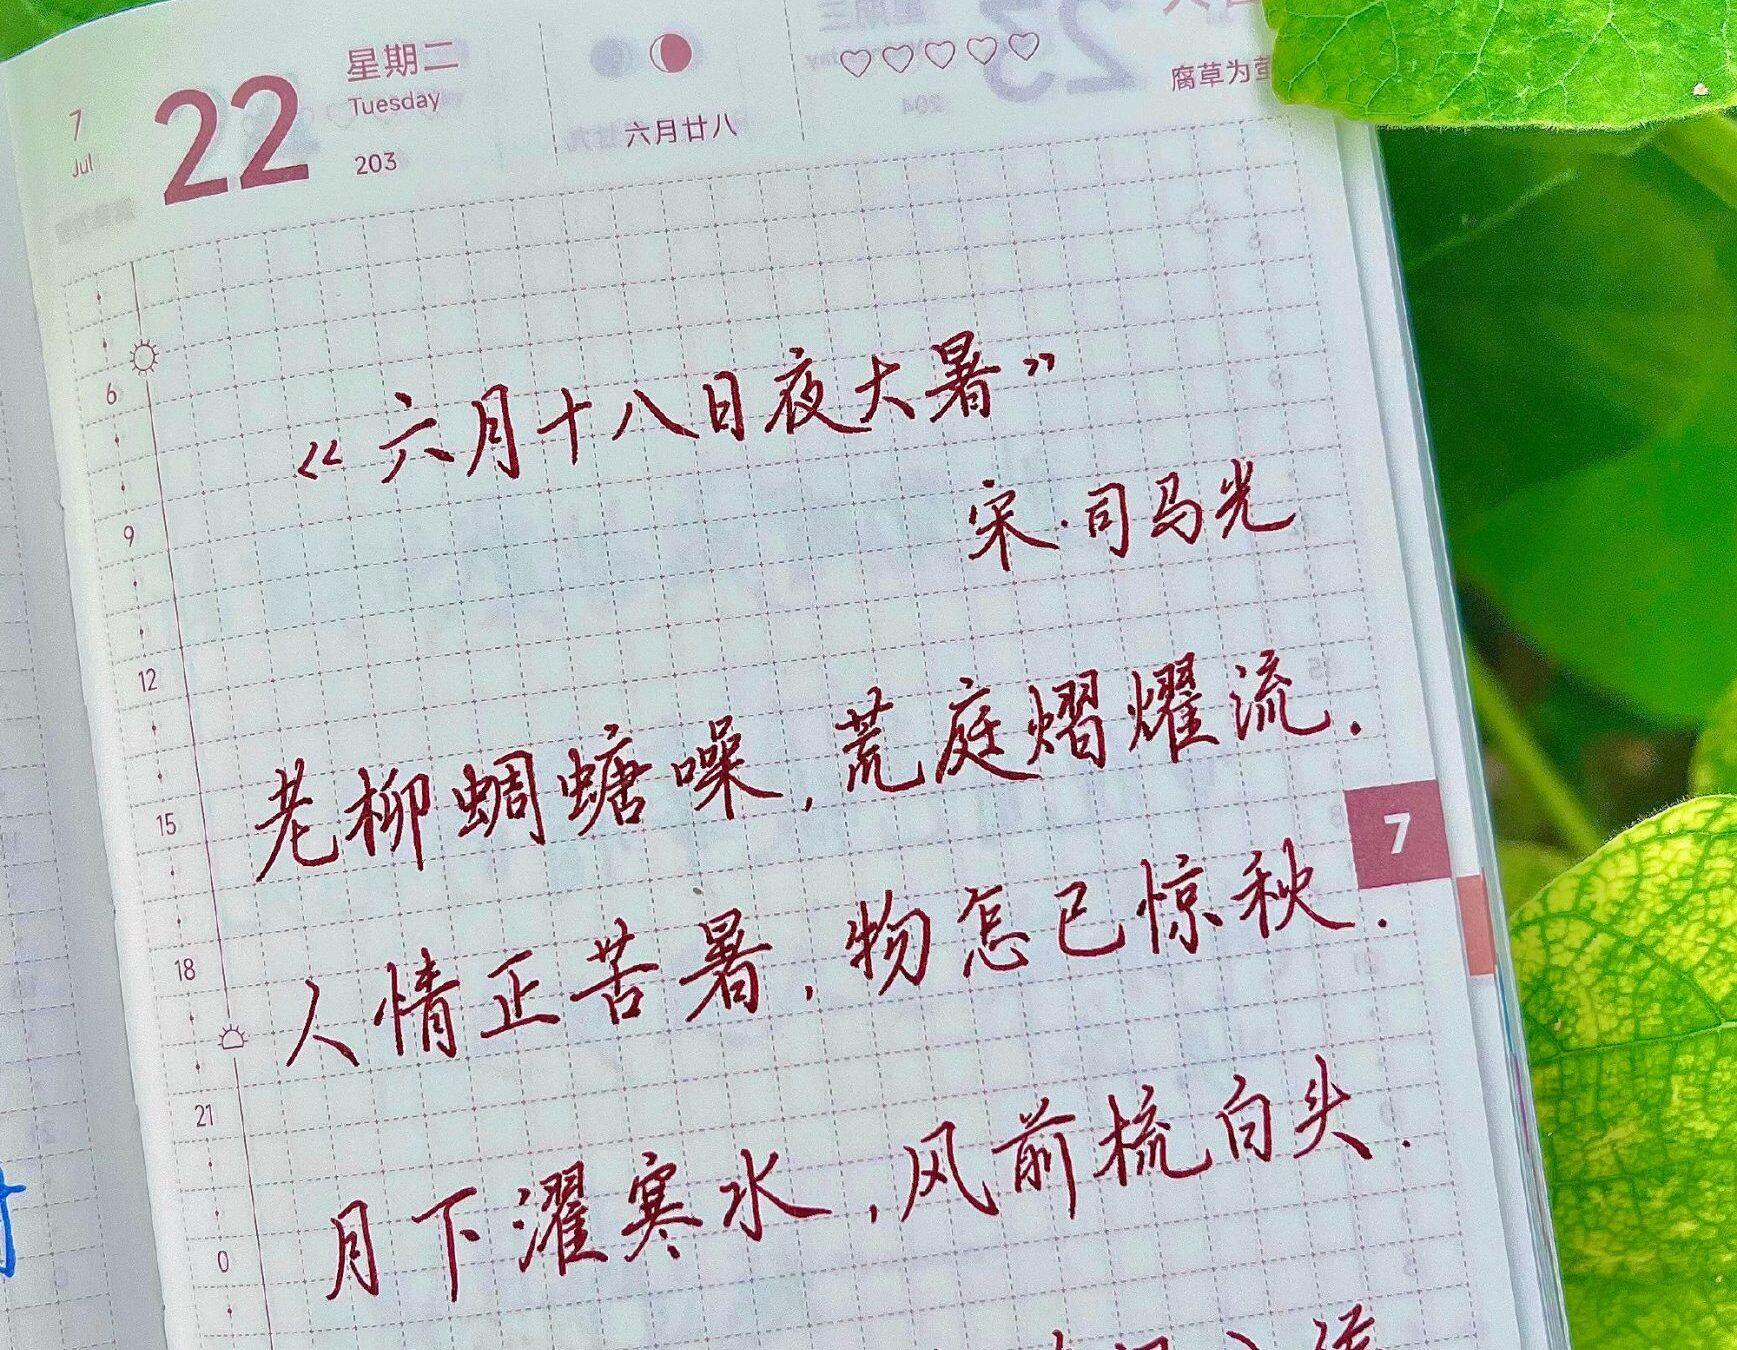 7
Jul
22
星期二
Tuesday
203
六月廿八
腐草为
《六月十八日夜大暑》
宋·司马光
老柳蜩螗噪,荒庭熠燿流.
人情正苦暑,物怎已惊秋.
月下濯寒水,风前梳白头.
6
9
12
15
18
21
0
7